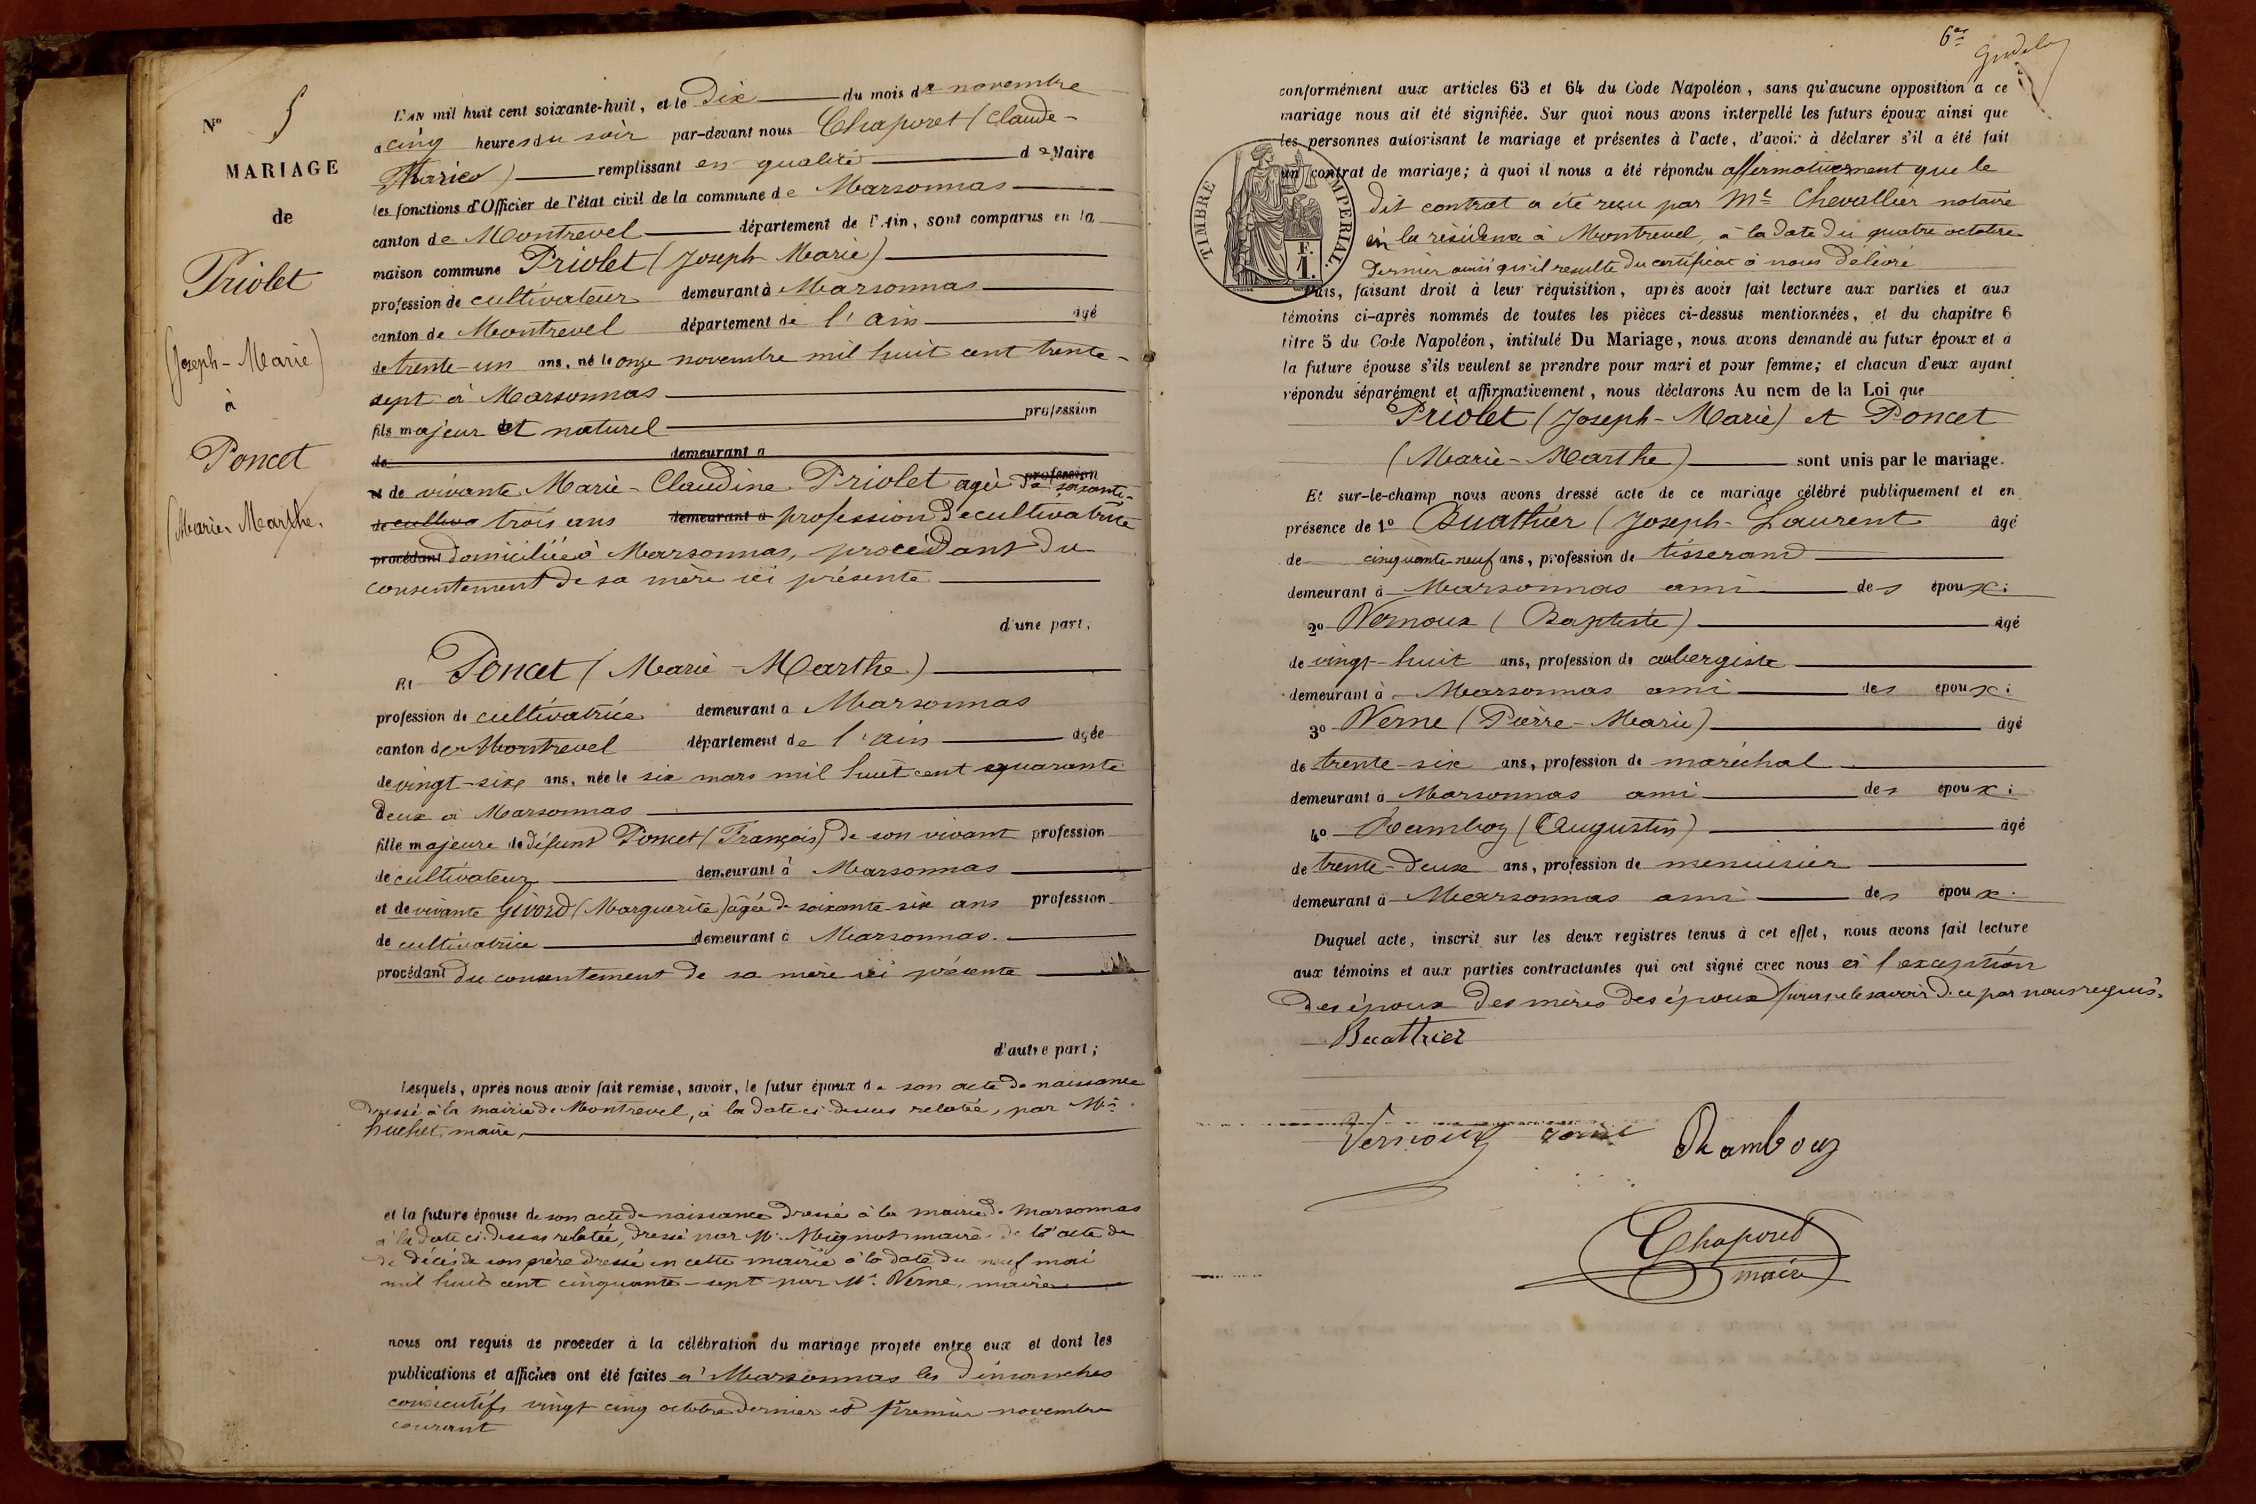 N° 5
MARIAGE
de
Priolet
(Joseph-Marie)
à
Poncet
(Marie-Marthe.
L'AN mil huit cent soixante-huit, et le Dix du mois de novembre
a cinq heures du soir par-devant nous Chaporet (Claude-
Marie) remplissant en qualité de Maire
les fonctions d'Officier de l'état civil de la commune de Marsonnas
canton de Montrevel département de l'Ain, sont comparus en la
maison commune Priolet (Joseph Marie)
profession de cultivateur demeurant à Marsonnas
canton de Montrevel département de l'ain agé
de trente-un ans, né le onze novembre mil huit cent trente-
sept à Marsonnas
fils majeur et naturel profession
de demeurant a
et de vivante Marie-Claudine Priolet agée de soixante- profession
de cultiva trois ans demeurant à profession de cultivatrice
procédant domiciliée à Marsonnas, procédant du
consentement de sa mère ici présente
d'une part,
Et Poncet (Marie-Marthe)
profession de cultivatrice demeurant a Marsonnas
canton de Montrevel département de l'ain agée
de vingt-six ans, née le six mars mil huit cent quarante
deux à Marsonnas
fille majeure de défunt Poncet (François) de son vivant profession
de cultivateur demeurant à Marsonnas
et de vivante Givord (Marguerite) âgée de soixante-six ans profession
de cultivatrice demeurant à Marsonnas.
procédant du consentement de sa mère ici présente
d'autre part;
Lesquels, après nous avoir fait remise, savoir, le futur époux de son acte de naissance
dressé à la mairie de Montrevel, à la date ci-dessus relatée, par Mr.
huchet, maire,
et la future épouse de son acte de naissance dressé à la mairie de Marsonnas
à la date ci-dessus relatée, dressé par Mr. Mignot maire de l'acte de
de décès de son père dressé en cette mairie à la date du neuf mai
mil huit cent cinquante-sept par Mr. Verne, maire
nous ont requis de procéder à la célébration du mariage projeté entre eux et dont les
publications et affiches ont été faites à Marsonnas les dimanches
consécutifs vingt cinq octobre dernier et premier novembre
courant
6e
conformément aux articles 63 et 64 du Code Napoléon, sans qu'aucune opposition à ce
mariage nous ait été signifiée. Sur quoi nous avons interpellé les futurs époux ainsi que
les personnes autorisant le mariage et présentes à l'acte, d'avoir à déclarer s'il a été fait
un contrat de mariage; à quoi il nous a été répondu affirmativement que le
dit contrat a été reçu par Me Chevallier notaire
en la résidence à Montrevel, à la date du quatre octobre
dernier ainsi qu'il resulte du certificat à nous délivré
TIMBRE IMPERIAL.
F.
1.
Puis, faisant droit à leur réquisition, après avoir fait lecture aux parties et aux
témoins ci-après nommés de toutes les pièces ci-dessus mentionnées, et du chapitre 6
titre 5 du Code Napoléon, intitulé Du Mariage, nous avons demandé au futur époux et à
la future épouse s'ils veulent se prendre pour mari et pour femme; et chacun d'eux ayant
répondu séparément et affirmativement, nous déclarons Au nom de la Loi que
Priolet (Joseph-Marie) et Poncet
(Marie-Marthe) sont unis par le mariage.
Et sur-le-champ nous avons dressé acte de ce mariage célébré publiquement et en
présence de 1° Buathier (Joseph-Laurent âgé
de cinquante-neuf ans, profession de tisserand
demeurant à Marsonnas ami des époux;
2° Vernoux (Baptiste) âgé
de vingt-huit ans, profession de aubergiste
demeurant à Marsonnas ami des époux;
3° Verne (Pierre-Marie) âgé
de trente-six ans, profession de maréchal
demeurant à Marsonnas ami des époux;
4° Ramboz (Augustin) âgé
de trente-deux ans, profession de menuisier
demeurant à Marsonnas ami des époux.
Duquel acte, inscrit sur les deux registres tenus à cet effet, nous avons fait lecture
aux témoins et aux parties contractantes qui ont signé avec nous à l'exception
des époux des mères des époux pour ne le savoir de ce par nous requis.
Buathier
Vernoux Ramboz
Chaporet
maire